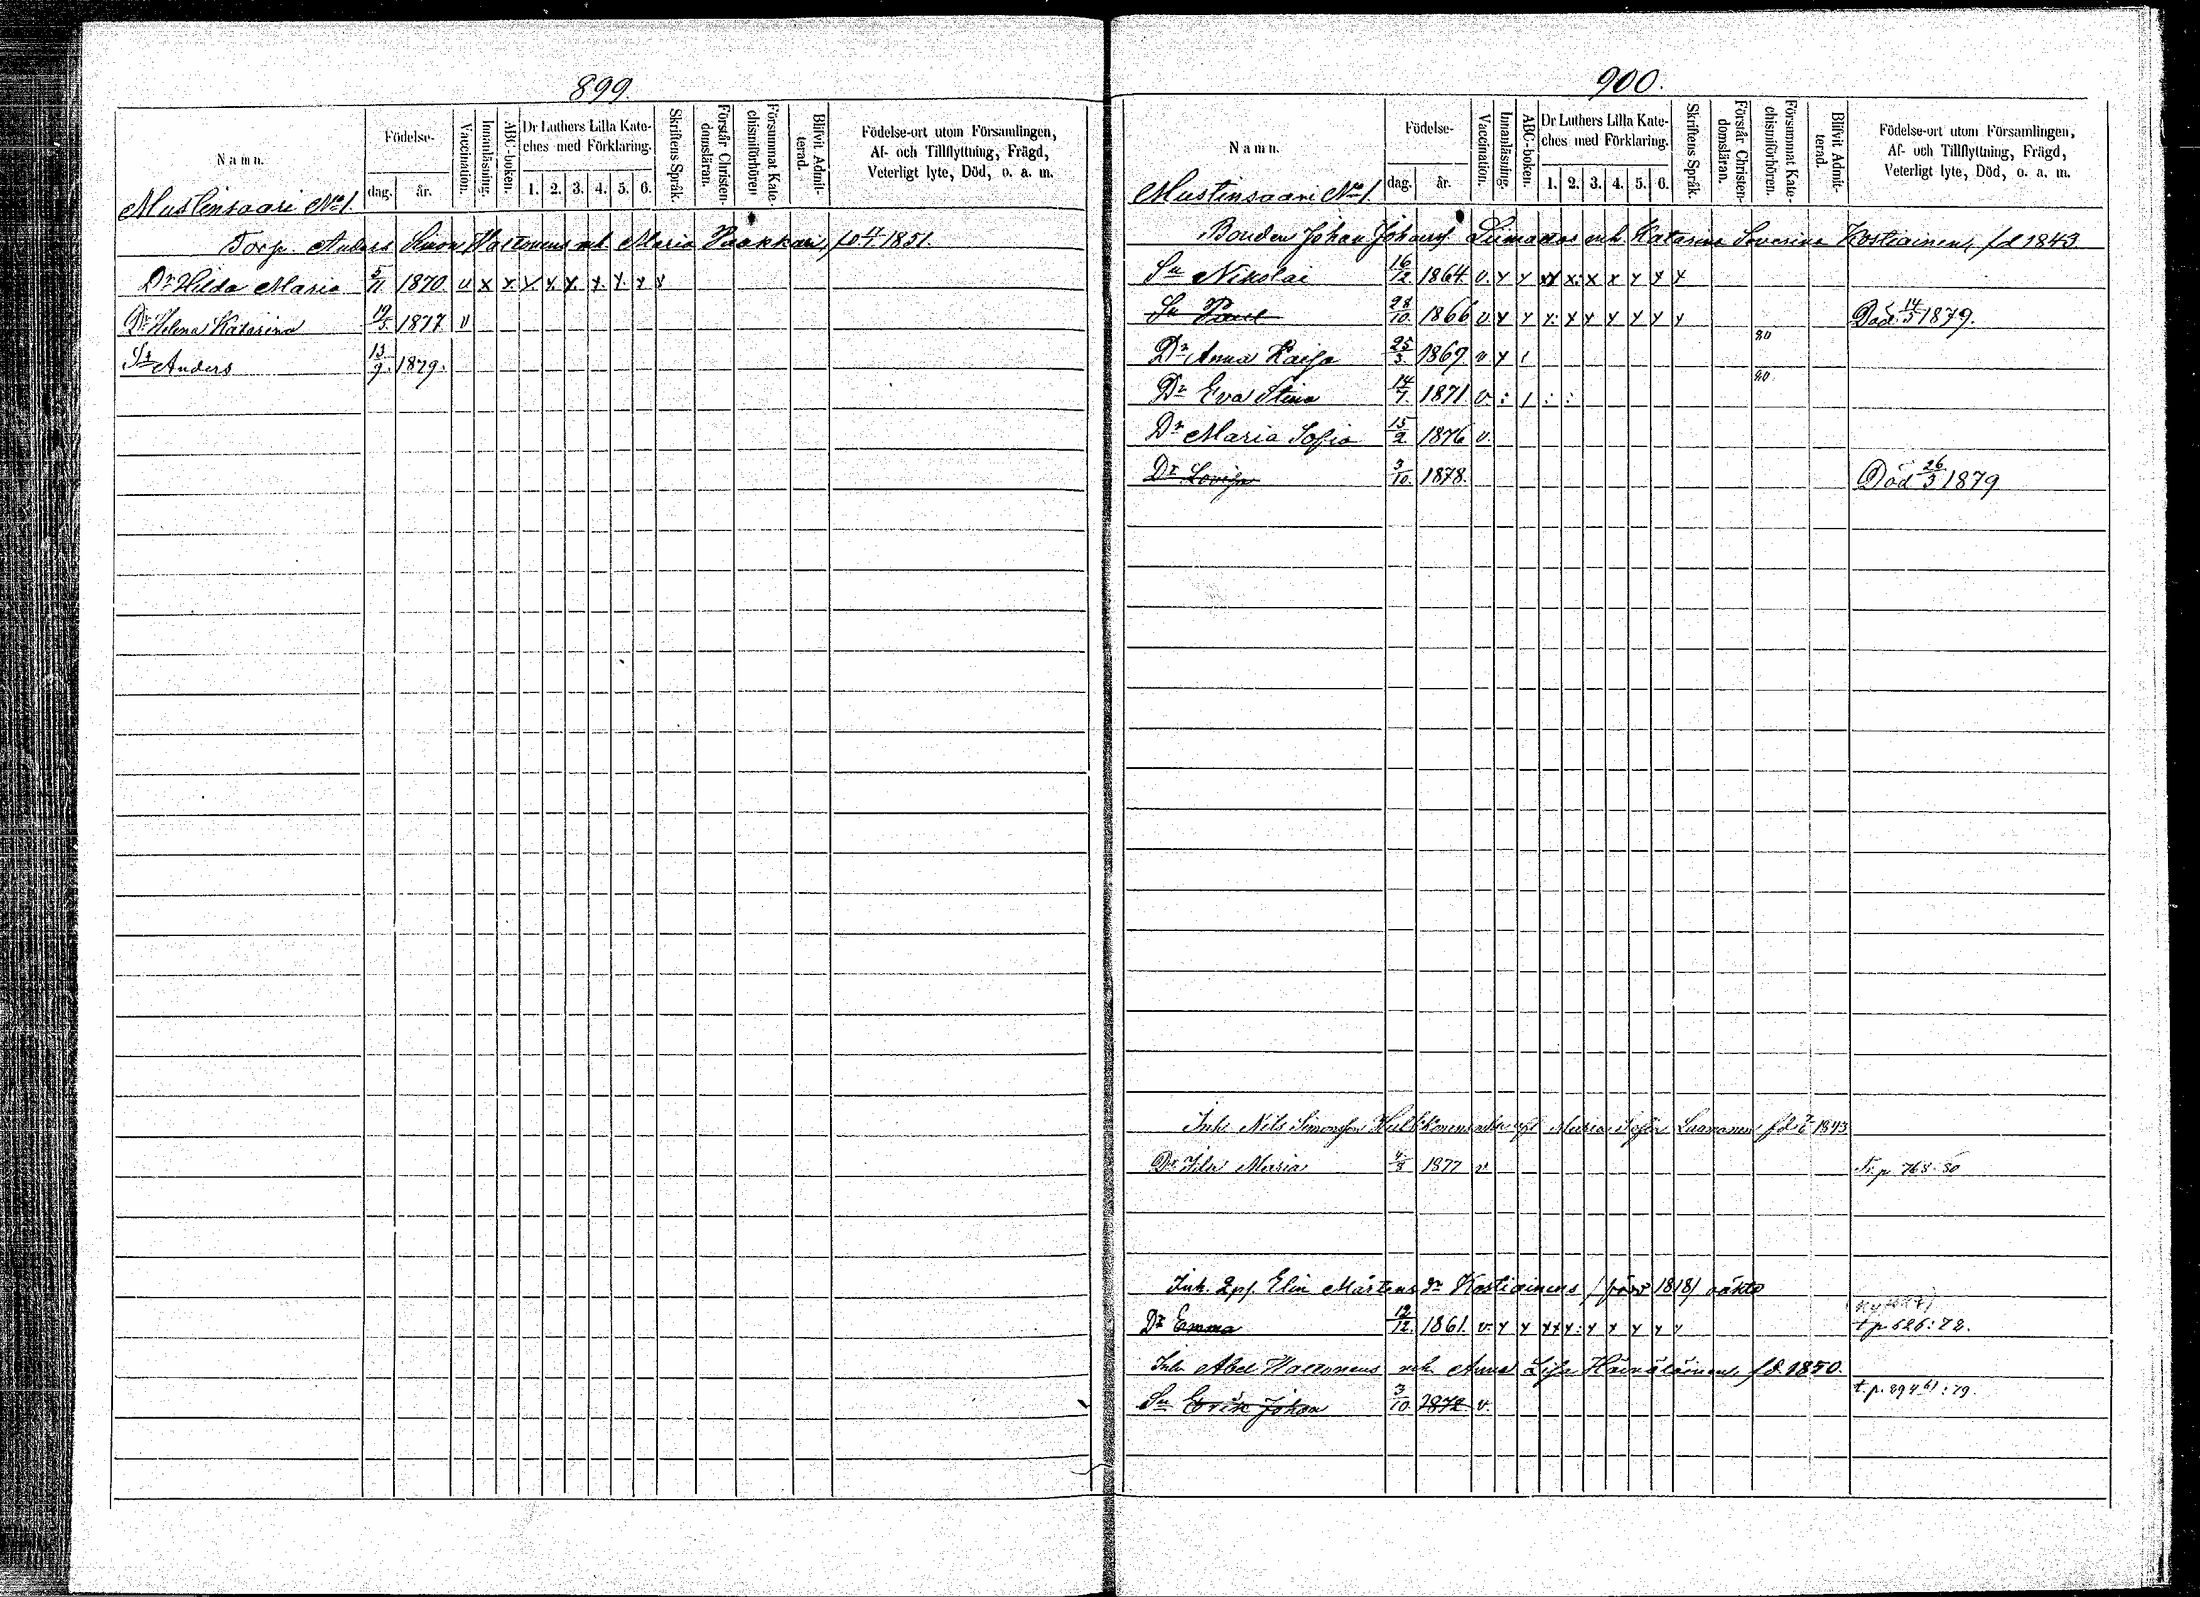 899.
Namn.
Födelse-
dag.
år.
Vaccination.
Innanläsning.
ABC-boken.
Dr Luthers Lilla Kate-
ches med Förklaring.
1. 2. 3. 4. 5. 6.
Skriftens Språk.
Förstår Christen-
domsläran.
Försummat Kate-
chismiförhören
Blifvit Admit-
terad.
Födelse-ort utom Församlingen,
Af- och Tillflyttning, Frägd,
Veterligt lyte, Död, o. a. m.
Mustinsaari No 1.
Torp. Anders Simon Hattonens mh. Maria Haakkari, 1851.
Dr Hilda Maria 5/11 1870. v x x x x x x x x x
Dr Helena Katarina 19/3. 1877 v
Sn Anders 13/9. 1879.
900.
Namn.
Födelse-
dag.
år.
Vaccination.
Innanläsning.
ABC-boken.
Dr Luthers Lilla Kate-
ches med Förklaring.
1. 2. 3. 4. 5. 6.
Skriftens Språk.
Förstår Christen-
domsläran.
Försummat Kate-
chismiförhören.
Blifvit Admit-
terad.
Födelse-ort utom Församlingen,
Af- och Tillflyttning, Frägd,
Veterligt lyte, Död, o. a. m.
Mustinsaari No 1.
Bonden Johan Johansf. mh Katarina Severina Kostiainen, fd 1843.
Sn Nikolai 16/12. 1864. v. x x xx x: x x x x x
Sn Paul 28/10. 1866 v x x x: x x x x x x Död 14/5 1879.
Dr Anna Kaisa 25/3. 1869 v x 1 80
Dr Eva Stina 14/7. 1871 v. : 1 : : 80
Dr Maria Sofia 15/2 1876 v.
Dr Lovisa 3/10. 1878. Död 26/3 1879
Inh. Nils Simonsson Hulkkonens Maria Sofia Laavanen fd 1843
Dr Ida Maria 4/3 1877 v Tr. p. 768. 80
Inh. Elin Mårtens dr Kostiainens /född 1818/ oäkta
Dr Emma 12/12. 1861. v. x x xx x: x x x x x t p 626:72.
Inh Abel Hattonens mh. Anna Lisa Häinäläinen, fd. 1850.
Sn Erik Johan 3/10. 1872 v. t. p. 294 b/:79.